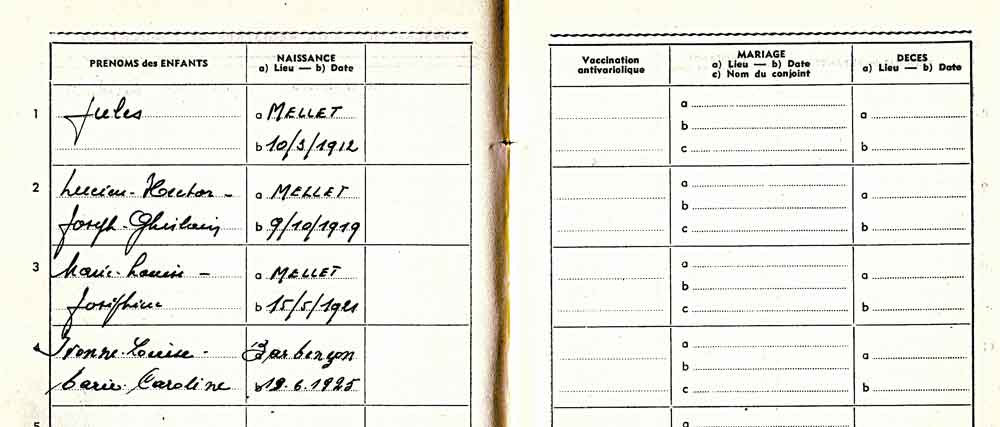 PRENOMS des ENFANTS
NAISSANCE
a) Lieu — b) Date
1
Jules
a MELLET
b 10/3/1912
2
Lucien-Hector-
a MELLET
Joseph-Ghislain
b 9/10/1919
3
Marie-Louise-
a MELLET
Joséphine
b 15/5/1921
4
Yvonne-Louise-
Barbençon
Marie-Caroline
b 19.6.1925
5
Vaccination
antivariolique
MARIAGE
a) Lieu — b) Date
c) Nom du conjoint
DECES
a) Lieu — b) Date
a
a
b
c
b
a
a
b
c
b
a
a
b
c
b
a
a
b
c
b
a